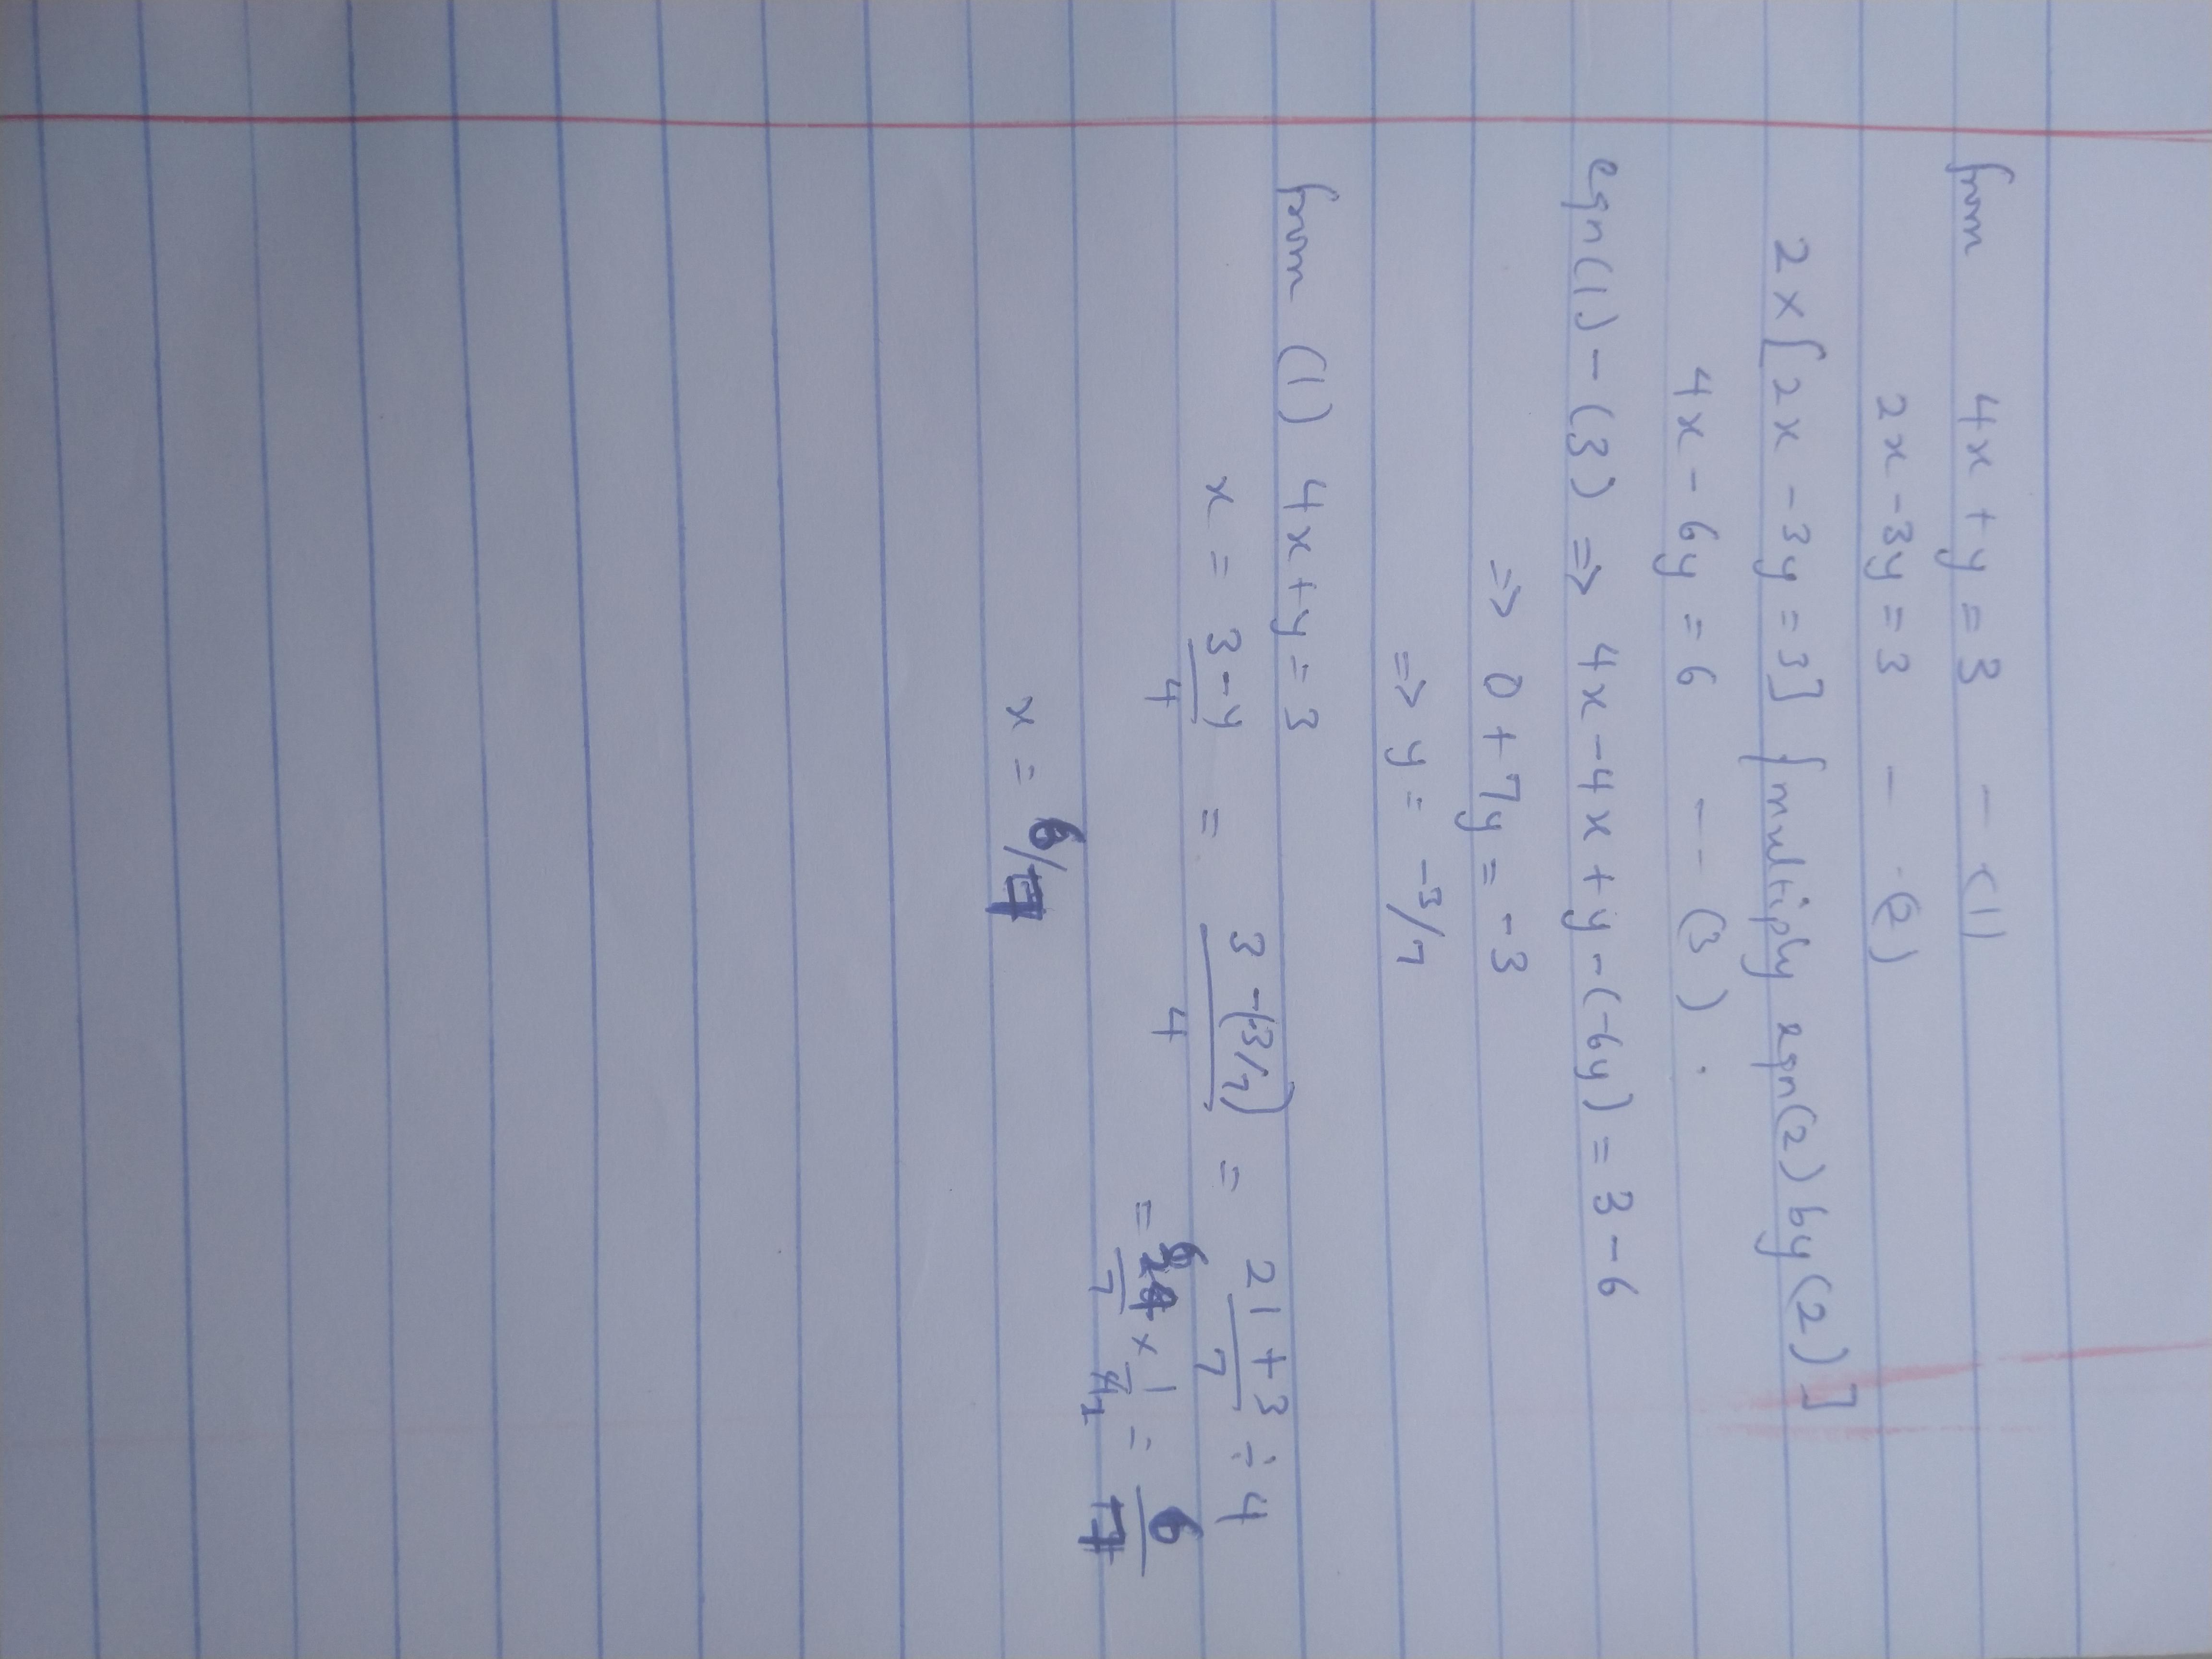 from 4x + y = 3 - (1)
2x - 3y = 3 - - (2)
2x[2x - 3y = 3] [multiply eqn(2) by (2)]
4x - 6y = 6 --- (3).
eqn(1) - (3) => 4x - 4x + y - (-6y) = 3 - 6
=> 0 + 7y = -3
=> y = -3/7
from (1) 4x + y = 3
x = 3-y/4 = 3-(-3/7)/4 = 21+3/7 ÷ 4
= 24/7 x 1/4 = 6/7
x = 6/7